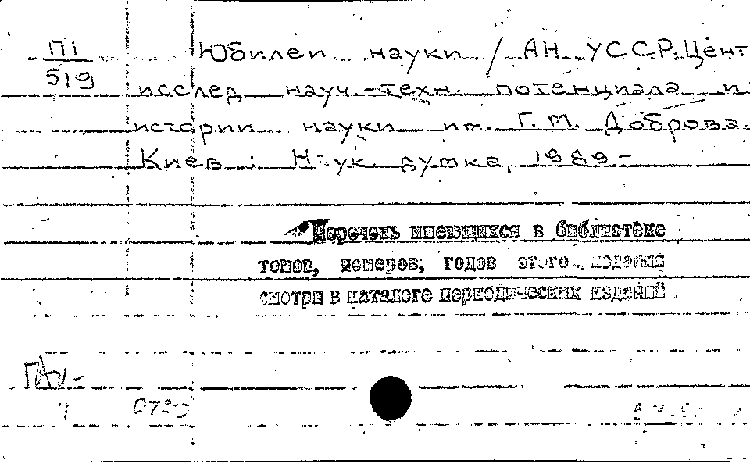 П1
519
Юбилеи науки / АН УССР. Цент
исслед науч.-техн. потенциала и
истории науки им. Г.М. Доброва.
Киев : Наук. думка, 1989-
Перечень имеющихся в библиотеке
томов, номеров, годов этого издания
смотри в каталоге периодических изданий